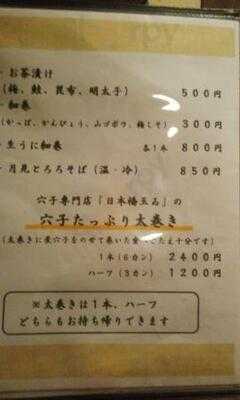 ・お茶漬け
（梅、鮭、昆布、明太子） 500円
・細巻
（かっぱ、かんぴょう、山ゴボウ、梅しそ） 300円
・生うに細巻 各1本 800円
・月見とろろそば（温・冷） 850円
穴子専門店『日本橋玉ゐ』の
穴子たっぷり太巻き
（太巻きに煮穴子をのせて巻いた食べごたえ十分です）
1本（6カン） 2400円
ハーフ（3カン） 1200円
※太巻きは1本、ハーフ
どちらもお持ち帰りできます